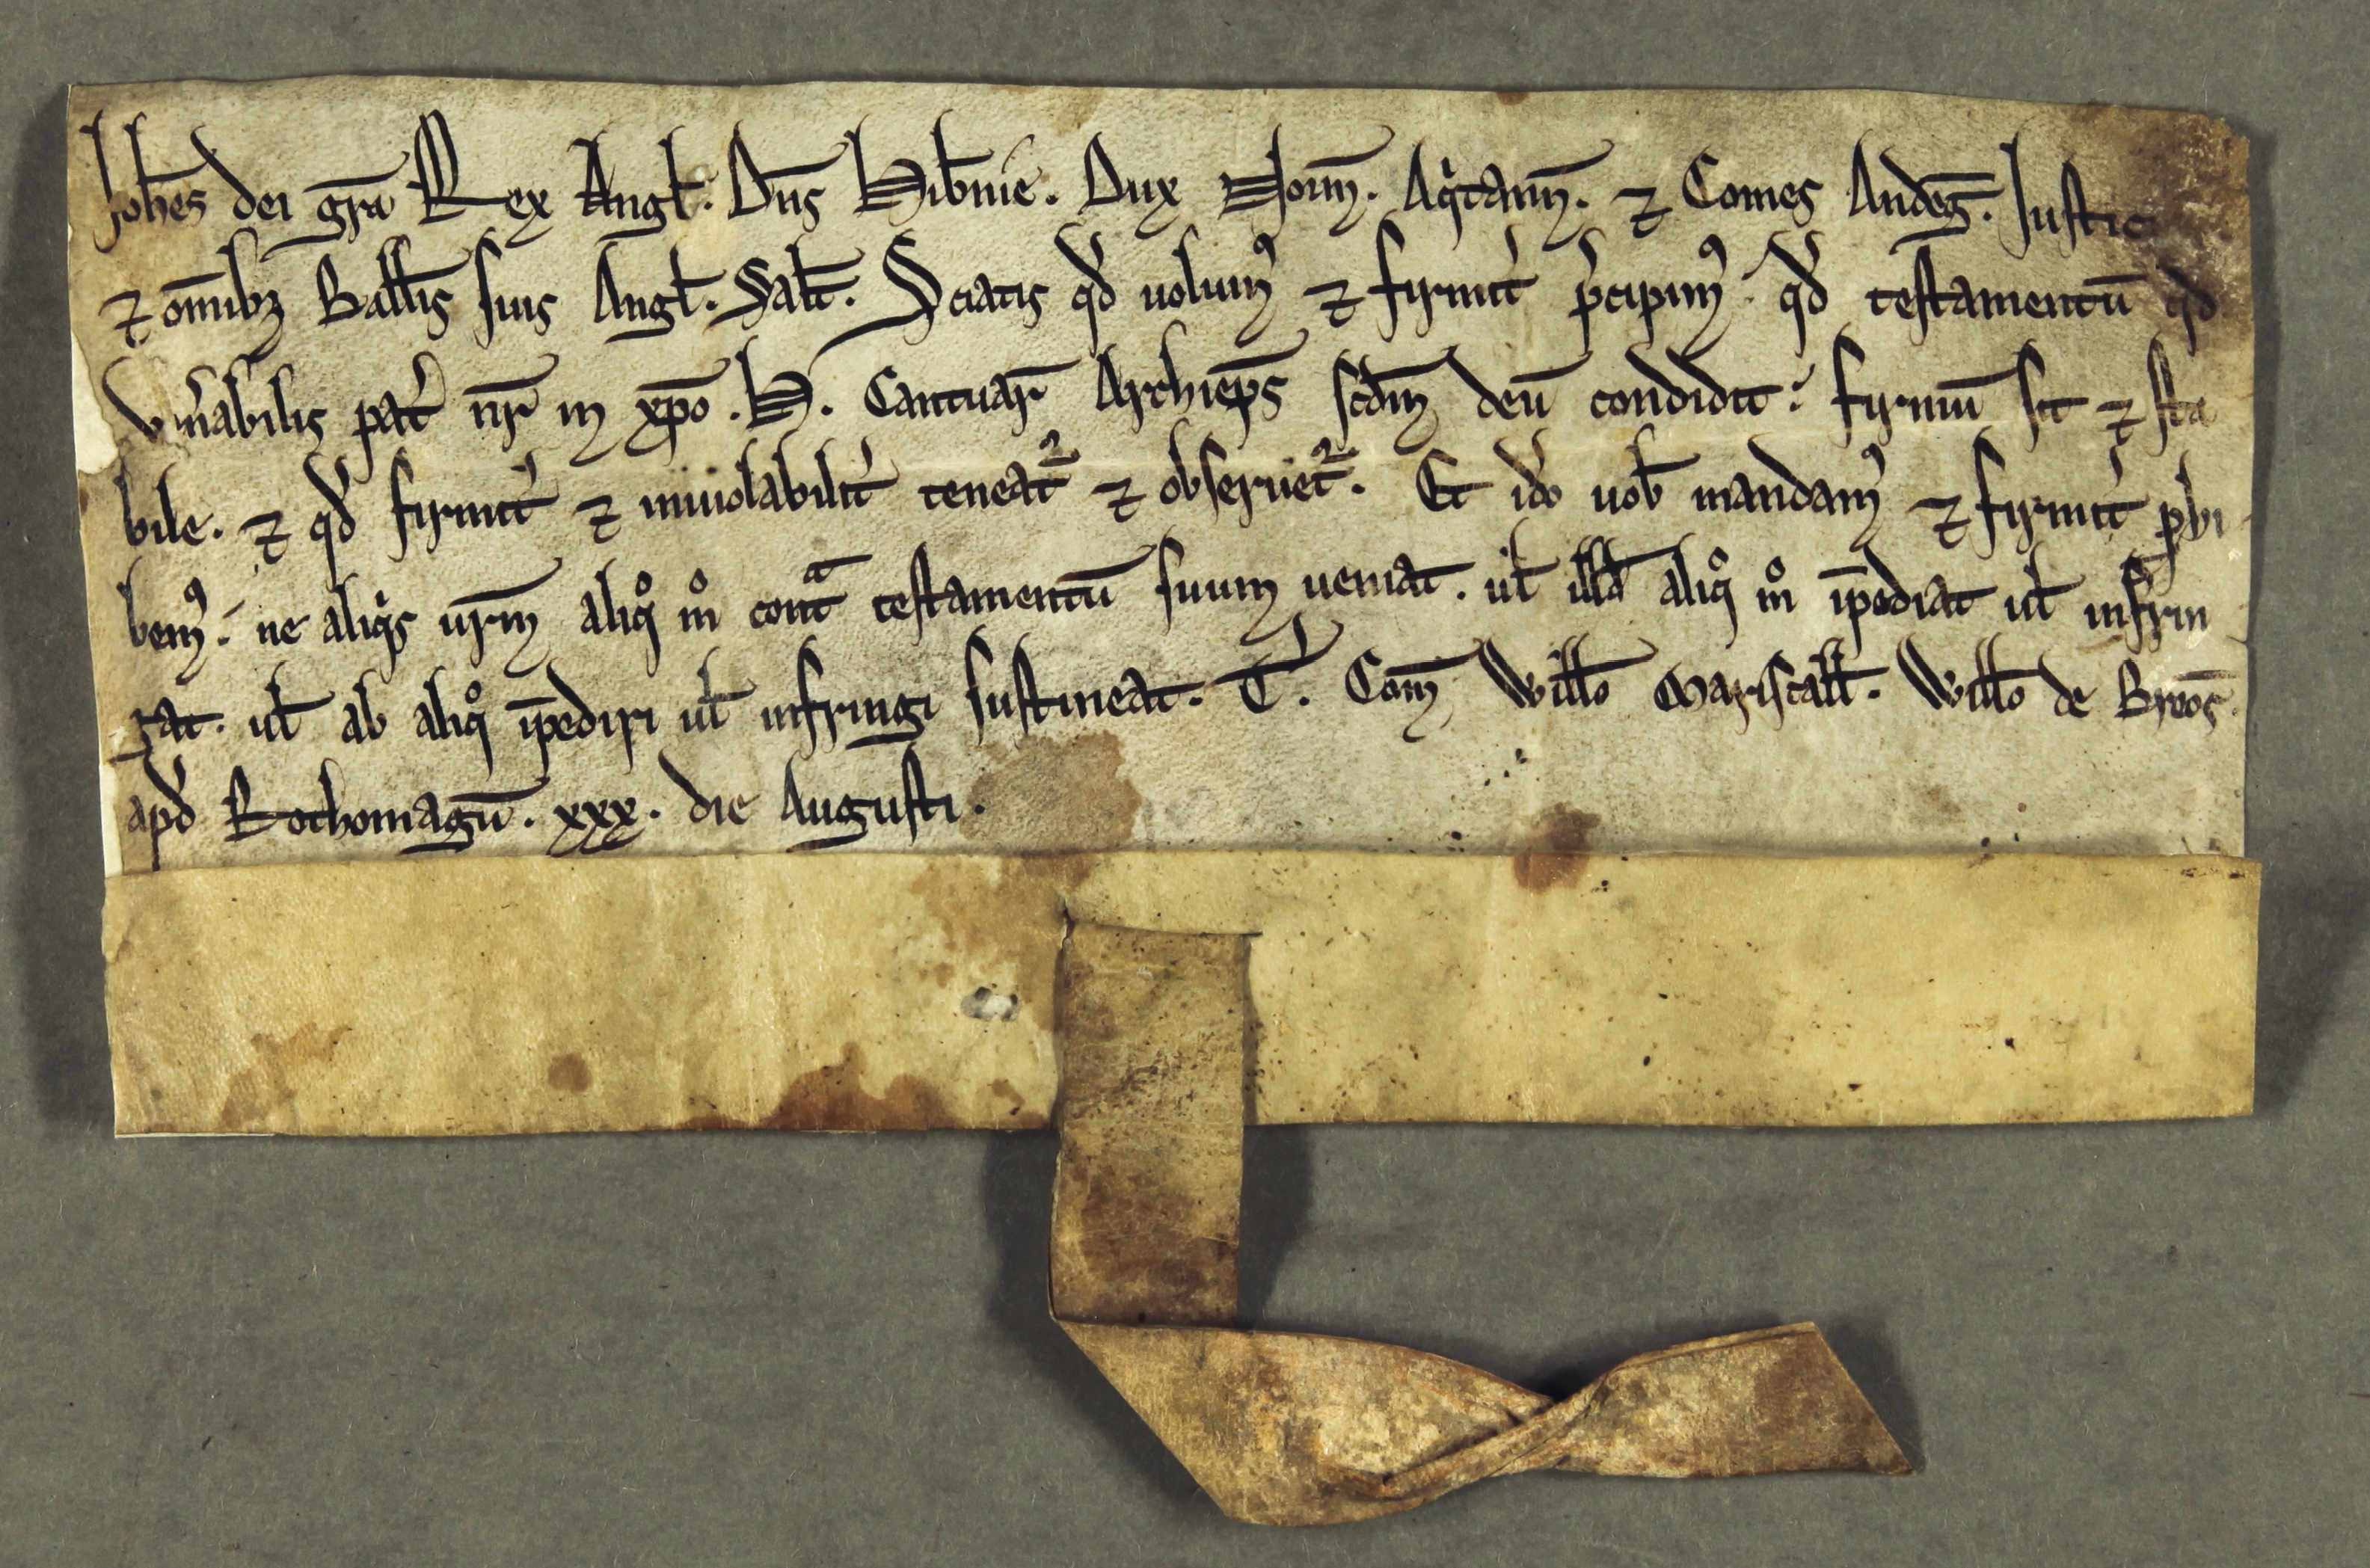 Joh̄es dei gr̄a Rex Angł. Dn̄s Hib̄nie. Dux Norm̄. Aqⁱtann̄. ⁊ Comes Andeḡ. Justic
⁊ om̄ibꝫ Bałłis suis Angł. Salt̄. Sciatis qđ uolumꝰ ⁊ firmit͛ p͛cipimꝰ. qđ testamentū qđ
ven͛abilis pat͛ nr̄ in xp̄o. H. Cantuar̄ Archiep̄s scd̄m deū condidit. firmū sit ⁊ sta
bile. ⁊ qđ firmit͛ ⁊ inuiolabilit͛ teneat᷑ ⁊ obseruet᷑. Et iđo uoƀ mandamꝰ ⁊ firmit͛ ꝓhi
bemꝰ. ne aliqⁱs ur̄m aliqͦ mͦ contᵃ testamentū suum ueniat. uł iłłđ aliqͦ mͦ īpediat uł infrin
gat. uł ab aliqͦ īpediri uł infringi sustineat. T͛. Com̄ Wiłło Mariscałł. Wiłło de Breos̄.
apđ Rothomagū. xxx. die Augusti.